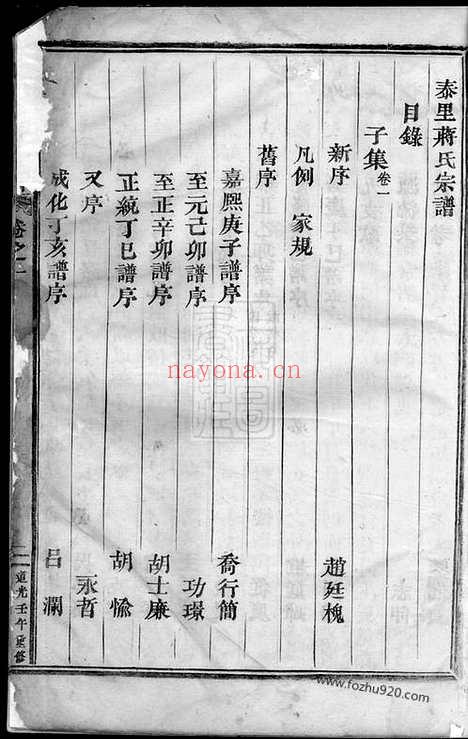 泰里蔣氏宗譜
目錄
子集卷一
新序 趙廷槐
凡例 家規
舊序
嘉熙庚子譜序 喬行簡
至元己卯譜序 功璟
至正辛卯譜序 胡士廉
正統丁巳譜序 胡㦎
又序 永哲
成化丁亥譜序 呂瀾
卷之一
道光壬午重修
nayona.cn
www.fozhu920.com